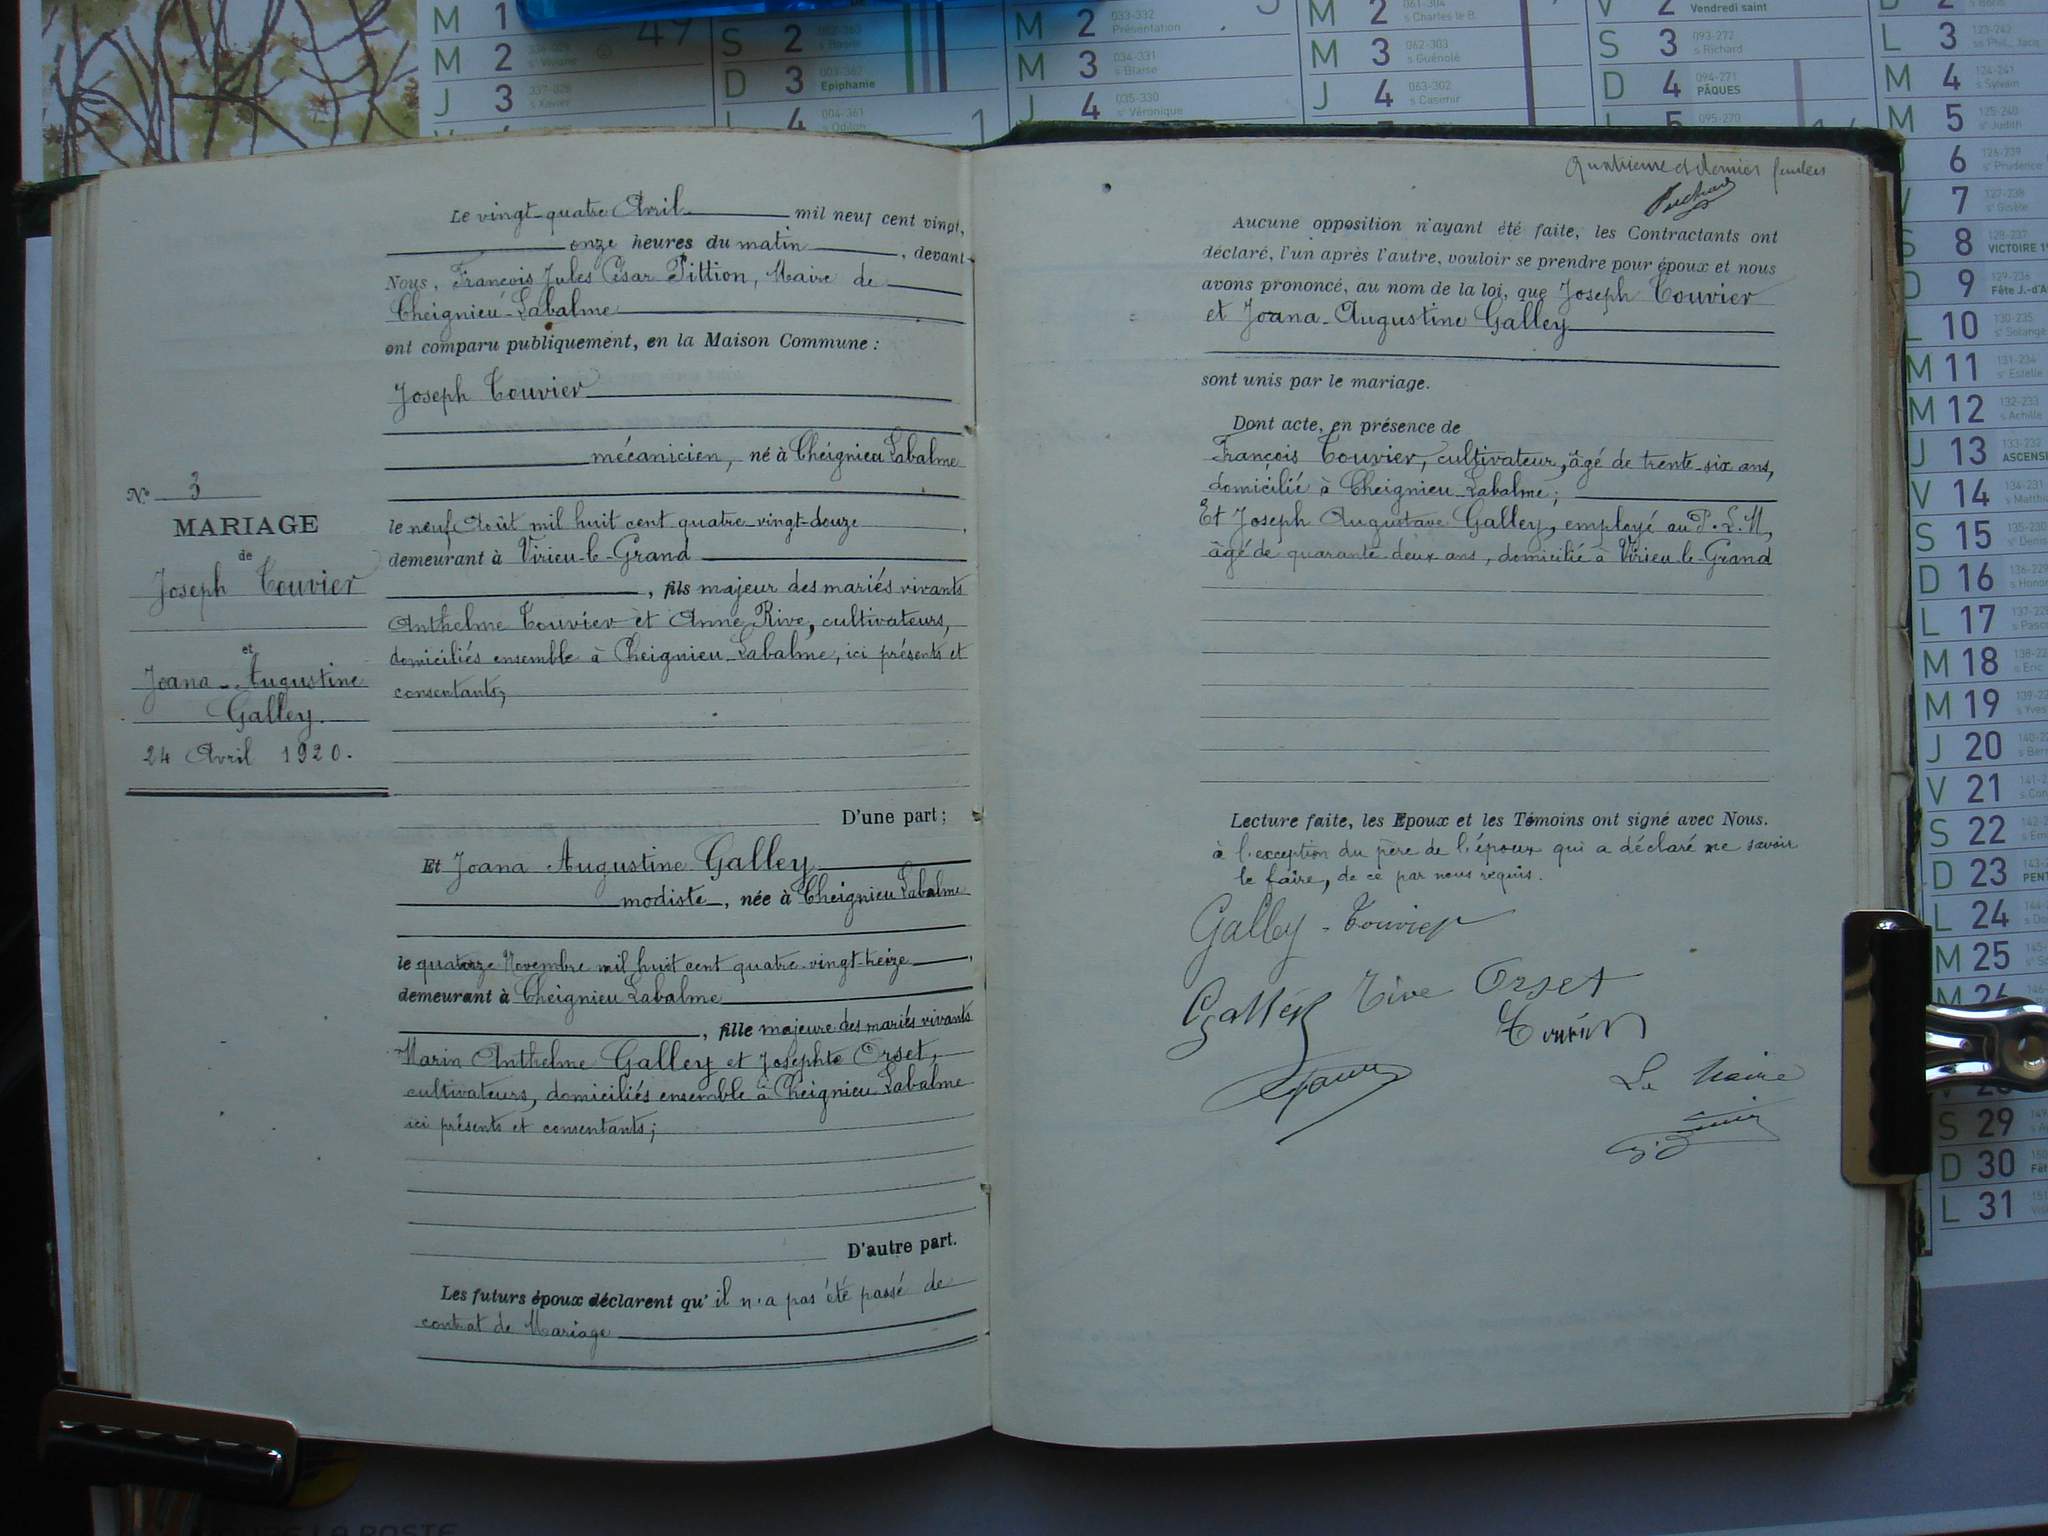 N° 3
MARIAGE
de
Joseph Touvier
et
Joana-Augustine
Galley.
24 Avril 1920.
Le vingt-quatre Avril mil neuf cent vingt,
onze heures du matin, devant
Nous, François Jules César Pittion, Maire de
Cheignieu-Labalme
ont comparu publiquement, en la Maison Commune :
Joseph Touvier
mécanicien, né à Cheignieu Labalme
le neuf Août mil huit cent quatre-vingt-douze,
demeurant à Virieu-le-Grand
, fils majeur des mariés vivants
Anthelme Touvier et Anne Rive, cultivateurs,
domiciliés ensemble à Cheignieu-Labalme, ici présents et
consentants;
D'une part ;
Et Joana Augustine Galley
modiste, née à Cheignieu Labalme
le quatorze Novembre mil huit cent quatre-vingt-treize,
demeurant à Cheignieu Labalme
, fille majeure des mariés vivants
Marin Anthelme Galley et Josephte Orset,
cultivateurs, domiciliés ensemble à Cheignieu Labalme
ici présents et consentants;
D'autre part.
Les futurs époux déclarent qu'il n'a pas été passé de
contrat de Mariage
Quatrième et dernier feuillet
Aucune opposition n'ayant été faite, les Contractants ont
déclaré, l'un après l'autre, vouloir se prendre pour époux et nous
avons prononcé, au nom de la loi, que Joseph Touvier
et Joana-Augustine Galley
sont unis par le mariage.
Dont acte, en présence de
François Touvier, cultivateur, âgé de trente-six ans,
domicilié à Cheignieu-Labalme;
Et Joseph Augustave Galley, employé au P.L.M,
âgé de quarante-deux ans, domicilié à Virieu-le-Grand
Lecture faite, les Epoux et les Témoins ont signé avec Nous.
à l'exception du père de l'époux qui a déclaré ne savoir
le faire, de ce par nous requis.
Galley - Touvier
Galley Rive Orset
Touvier
Le Maire
M 1
M 2
J 3
S 2
D 3 Epiphanie
L 4
M 2 033-332 Présentation
M 3 034-331 s Blaise
J 4 035-330 s° Véronique
M 2 061-304 s Charles le B.
M 3 062-303 s Guénolé
J 4 063-302 s Casimir
V 2 Vendredi saint
S 3 093-272 s Richard
D 4 094-271 PÂQUES
L 5 095-270
L 3
M 4
M 5
J 6
V 7
S 8 VICTOIRE
D 9
L 10
M 11
M 12
J 13
V 14
S 15
D 16
L 17
M 18
M 19
J 20
V 21
S 22
D 23
L 24
M 25
M 26
S 29
D 30
L 31
LA POSTE